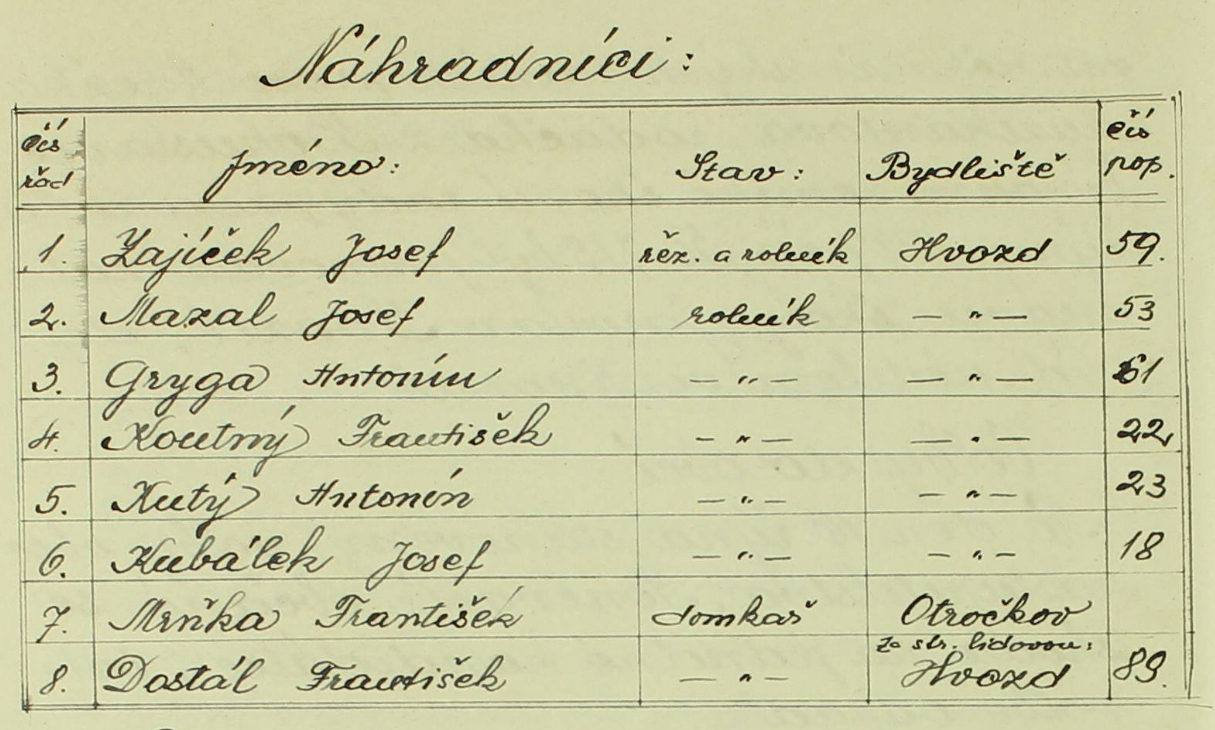 Náhradníci:
čís řad Jméno: Stav: Bydliště čís pop.
1. Zajíček Josef řez. a rolník Hvozd 59.
2. Mazal Josef rolník —„— 53
3. Gryga Antonín —„— —„— 61
4. Koutný František —„— —„— 22
5. Kutý Antonín —„— —„— 23
6. Kubálek Josef —„— —„— 18
7. Mrňka František domkař Otročkov
za str. lidovou:
8. Dostál František —„— Hvozd 89.